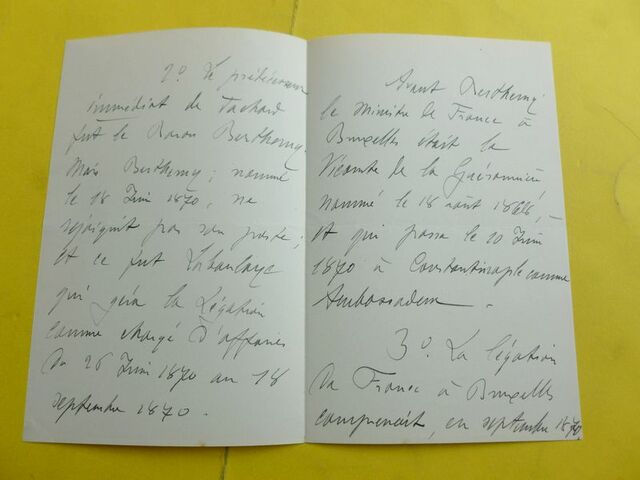 2º. Le prédécesseur
immédiat de Tachard
fut le Baron Berthemy.
Mais Berthemy, nommé
le 18 Juin 1870, ne
rejoignit pas son poste ;
et ce fut Laboulaye
qui géra la Légation
comme chargé d'affaires
du 26 Juin 1870 au 18
septembre 1870.
Avant Berthemy
le Ministre de France à
Bruxelles était le
Vicomte de la Guéronnière,
nommé le 18 août 1868,
et qui passa le 10 Juin
1870 à Constantinople comme
Ambassadeur.
3º. La légation
de France à Bruxelles
comprenait, en septembre 1870,